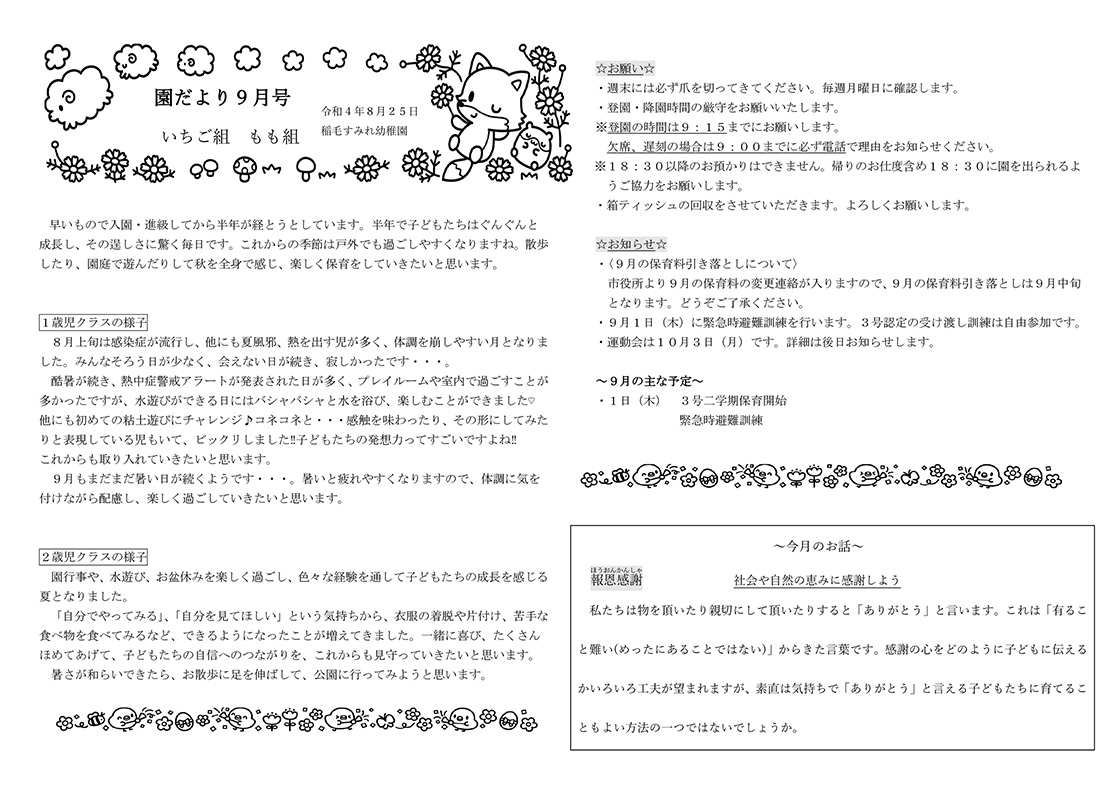 園だより９月号
いちご組　もも組
令和４年８月２５日
稲毛すみれ幼稚園
早いもので入園・進級してから半年が経とうとしています。半年で子どもたちはぐんぐんと
成長し、その逞しさに驚く毎日です。これからの季節は戸外でも過ごしやすくなりますね。散歩
したり、園庭で遊んだりして秋を全身で感じ、楽しく保育をしていきたいと思います。
１歳児クラスの様子
８月上旬は感染症が流行し、他にも夏風邪、熱を出す児が多く、体調を崩しやすい月となりま
した。みんなそろう日が少なく、会えない日が続き、寂しかったです・・・。
酷暑が続き、熱中症警戒アラートが発表された日が多く、プレイルームや室内で過ごすことが
多かったですが、水遊びができる日にはバシャバシャと水を浴び、楽しむことができました♡
他にも初めての粘土遊びにチャレンジ♪コネコネと・・・感触を味わったり、その形にしてみた
りと表現している児もいて、ビックリしました‼子どもたちの発想力ってすごいですよね‼
これからも取り入れていきたいと思います。
９月もまだまだ暑い日が続くようです・・・。暑いと疲れやすくなりますので、体調に気を
付けながら配慮し、楽しく過ごしていきたいと思います。
２歳児クラスの様子
園行事や、水遊び、お盆休みを楽しく過ごし、色々な経験を通して子どもたちの成長を感じる
夏となりました。
「自分でやってみる」、「自分を見てほしい」という気持ちから、衣服の着脱や片付け、苦手な
食べ物を食べてみるなど、できるようになったことが増えてきました。一緒に喜び、たくさん
ほめてあげて、子どもたちの自信へのつながりを、これからも見守っていきたいと思います。
暑さが和らいできたら、お散歩に足を伸ばして、公園に行ってみようと思います。
☆お願い☆
・週末には必ず爪を切ってきてください。毎週月曜日に確認します。
・登園・降園時間の厳守をお願いいたします。
※登園の時間は９：１５までにお願いします。
欠席、遅刻の場合は９：００までに必ず電話で理由をお知らせください。
※１８：３０以降のお預かりはできません。帰りのお仕度含め１８：３０に園を出られるよ
うご協力をお願いします。
・箱ティッシュの回収をさせていただきます。よろしくお願いします。
☆お知らせ☆
・〈９月の保育料引き落としについて〉
市役所より９月の保育料の変更連絡が入りますので、９月の保育料引き落としは９月中旬
となります。どうぞご了承ください。
・９月１日（木）に緊急時避難訓練を行います。３号認定の受け渡し訓練は自由参加です。
・運動会は１０月３日（月）です。詳細は後日お知らせします。
～９月の主な予定～
・１日（木）　３号二学期保育開始
緊急時避難訓練
～今月のお話～
ほうおんかんしゃ
報恩感謝　社会や自然の恵みに感謝しよう
私たちは物を頂いたり親切にして頂いたりすると「ありがとう」と言います。これは「有るこ
と難い(めったにあることではない)」からきた言葉です。感謝の心をどのように子どもに伝える
かいろいろ工夫が望まれますが、素直は気持ちで「ありがとう」と言える子どもたちに育てるこ
ともよい方法の一つではないでしょうか。